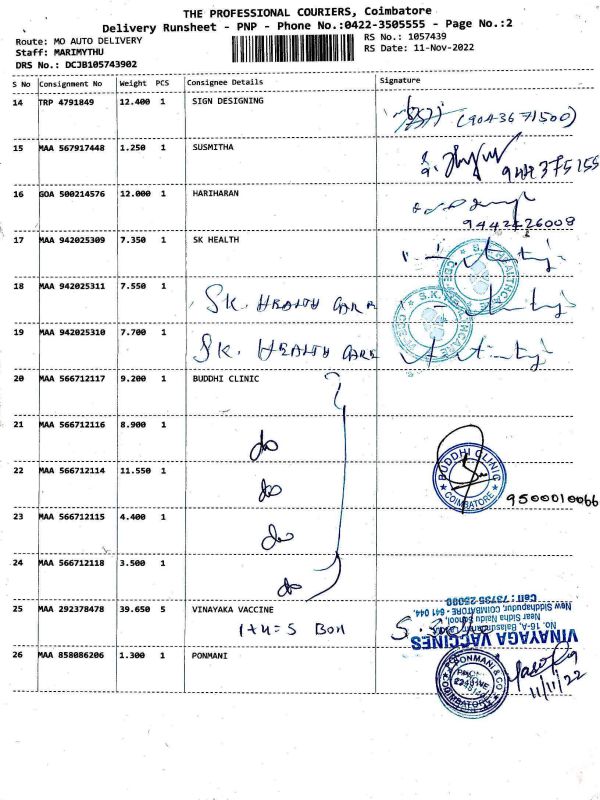 THE PROFESSIONAL COURIERS, Coimbatore
Delivery Runsheet - PNP - Phone No.:0422-3505555 - Page No.:2
Route: MO AUTO DELIVERY
Staff: MARIMYTHU
DRS No.: DCJB105743902
RS No.: 1057439
RS Date: 11-Nov-2022
S No Consignment No Weight PCS Consignee Details Signature
14 TRP 4791849 12.400 1 SIGN DESIGNING
(9043671500)
15 MAA 567917448 1.250 1 SUSMITHA
16 GOA 500214576 12.000 1 HARIHARAN
17 MAA 942025309 7.350 1 SK HEALTH
18 MAA 942025311 7.550 1 SK. HEALTH CARE
19 MAA 942025310 7.700 1 SK. HEALTH CARE
20 MAA 566712117 9.200 1 BUDDHI CLINIC
21 MAA 566712116 8.900 1 do
22 MAA 566712114 11.550 1 do
BUDDHI CLINIC
COIMBATORE
9500010066
23 MAA 566712115 4.400 1 do
24 MAA 566712118 3.500 1 do
25 MAA 292378478 39.650 5 VINAYAKA VACCINE
1+4=5 Box
VINAYAGA VACCINES
No. 16-A, Balasundaram
Near Sidha Naidu School,
New Siddhapudur, COIMBATORE - 641 044.
Cell : 73735 25000
26 MAA 858086206 1.300 1 PONMANI
PONMANI & CO
COIMBATORE
11/11/22